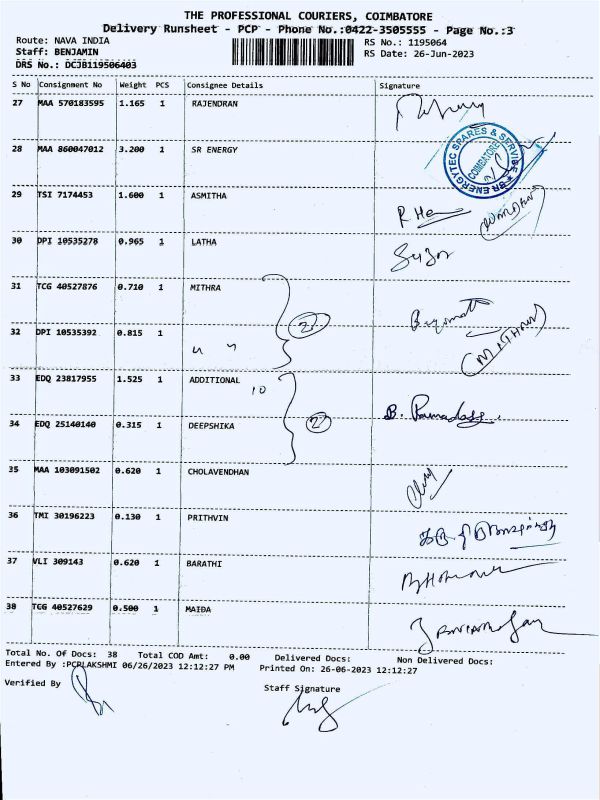 THE PROFESSIONAL COURIERS, COIMBATORE
Delivery Runsheet - PCP - Phone No.:0422-3505555 - Page No.:3
Route: NAVA INDIA RS No.: 1195064
Staff: BENJAMIN RS Date: 26-Jun-2023
DRS No.: DCJB119506403
S No Consignment No Weight PCS Consignee Details Signature
27 MAA 570183595 1.165 1 RAJENDRAN
28 MAA 860047012 3.200 1 SR ENERGY
SR ENERGYTEC SPARES & SERVICE
COIMBATORE
29 TSI 7174453 1.600 1 ASMITHA
30 DPI 10535278 0.965 1 LATHA
31 TCG 40527876 0.710 1 MITHRA
2
32 DPI 10535392 0.815 1 " "
33 EDQ 23817955 1.525 1 ADDITIONAL
10
2
34 EDQ 25140140 0.315 1 DEEPSHIKA
35 MAA 103091502 0.620 1 CHOLAVENDHAN
36 TMI 30196223 0.130 1 PRITHVIN
37 VLI 309143 0.620 1 BARATHI
38 TCG 40527629 0.500 1 MAIDA
Total No. Of Docs: 38 Total COD Amt: 0.00 Delivered Docs: Non Delivered Docs:
Entered By :PCPLAKSHMI 06/26/2023 12:12:27 PM Printed On: 26-06-2023 12:12:27
Verified By
Staff Signature